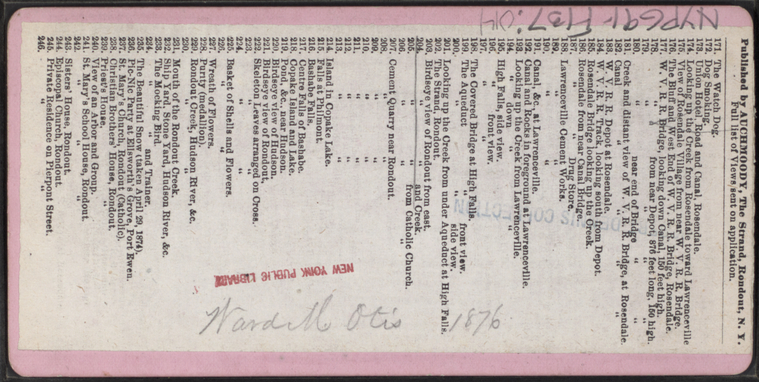 Published by AUCHMOODY, The Strand, Rondout, N. Y.
Full list of Views sent on application.
171. The Watch Dog.
172. Dog Smoking.
173. Union Hotel, Road and Canal, Rosendale.
174. Looking up the Creek from Rosendale toward Lawrenceville
175. View of Rosendale Village from near W. V. R. R. Bridge.
176. The Bluff and West End of W. V. R. R. Bridge, Rosendale.
177. W. V. R. R. Bridge, looking down Canal, 150 feet high.
178. " " from near Depot, 876 feet long, 150 high.
179. " "
180. " " near end of Bridge "
181. Creek and distant view of W. V. R. R. Bridge, at Rosendale.
182. Canal " "
183. W. V. R. R. Depot at Rosendale.
184. W. V. R. R. Track, looking south from Depot.
185. Rosendale Bridge, looking up the Creek.
186. Rosendale from near Canal Bridge.
187. " Drug Store.
188. Lawrenceville Cement Works.
189. " "
190. " "
191. Canal, &c., at Lawrenceville.
192. Canal and Rocks in foreground at Lawrenceville.
193. Looking up the Creek from Lawrenceville.
194. " down "
195. High Falls, side view.
196. " front view.
197. "
198. The Covered Bridge at High Falls.
199. The Aqueduct " front view.
200. " " side view.
201. Looking up the Creek from under Aqueduct at High Falls.
202. The Strand, Rondout.
203. Birdseye view of Rondout from east.
204. " " and Creek.
205. " " from Catholic Church.
206. " " "
207. Cement Quarry near Rondout.
208. " "
209. " "
210. " "
211. " "
212. " "
213. " "
214. Island in Copake Lake.
215. Falls at Philmont.
216. Bashabe Falls.
217. Centre Falls of Bashabe.
218. Copake Island and Lake.
219. Pond, &c., near Hudson.
220. Birdseye view of Hudson.
221. Birdseye view of Rondout.
222. Skeleton Leaves arranged on Cross.
223. " "
224. " "
225. Basket of Shells and Flowers.
226. " "
227. Wreath of Flowers.
228. Purity (medallion).
229. Rondout Creek, Hudson River, &c.
230. " "
231. Mouth of the Rondout Creek.
232. Ship Yard, Stone Yard, Hudson River, &c.
233. The Mocking Bird.
234. " and Trainer.
235. The Beautiful Snow (taken April 29, 1874).
236. Pic-Nic Party at Ellsworth's Grove, Port Ewen.
237. St. Mary's Church, Rondout (Catholic).
238. Christian Brothers' House, Rondout.
239. Priest's House, "
240. View of an Arbor and Group.
241. St. Mary's School House, Rondout.
242. " "
243. Sisters' House, Rondout.
244. Episcopal Church, Rondout.
245. Private Residence on Pierpont Street.
246. " "
NEW YORK PUBLIC LIBRARY
COLLECTION
1876